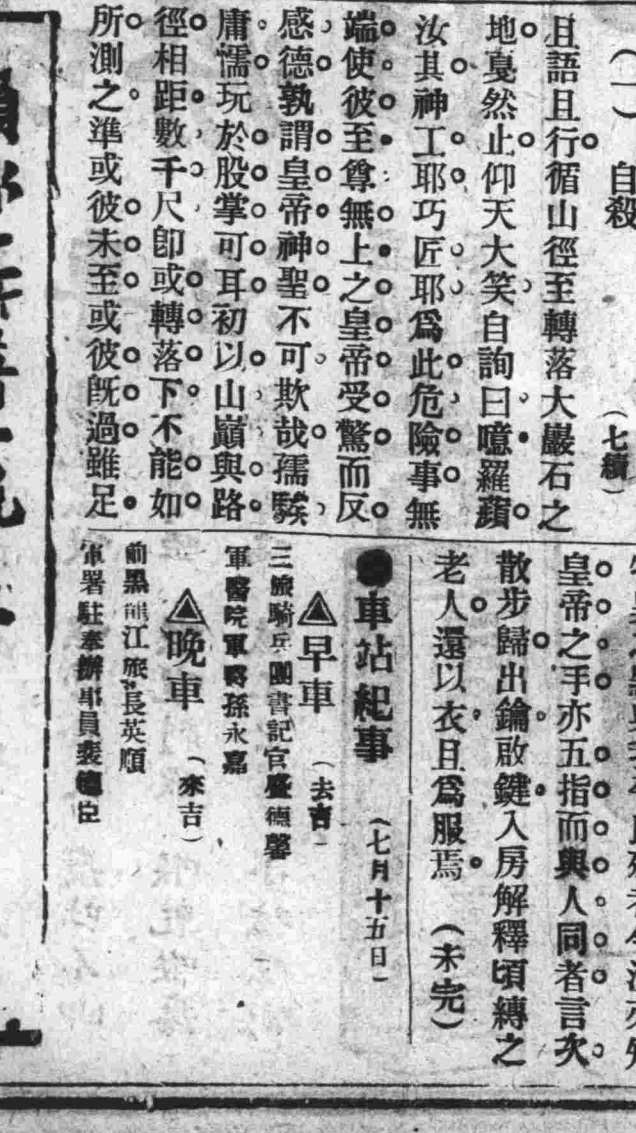 （一）　自殺　（七續）
且語且行循山徑至轉落大巖石之
地戛然止仰天大笑自詢曰噫羅蘋
汝其神工耶巧匠耶爲此危險事無
端使彼至尊無上之皇帝受驚而反
感德孰謂皇帝神聖不可欺哉孺騃
庸懦玩於股掌可耳初以山巓與路
徑相距數千尺卽或轉落下不能如
所測之準或彼未至或彼旣過雖足
皇帝之手亦五指而與人同者言次
散步歸出鑰啟鍵入房解釋頃縛之
老人還以衣且爲服焉　（未完）
●車站紀事　（七月十五日）
▲早車　（去吉）
三旅騎兵團書記官盛德馨
軍醫院軍醫孫永嘉
▲晚車　（來吉）
前黑龍江旅長英順
軍署駐奉辦事員裴德臣